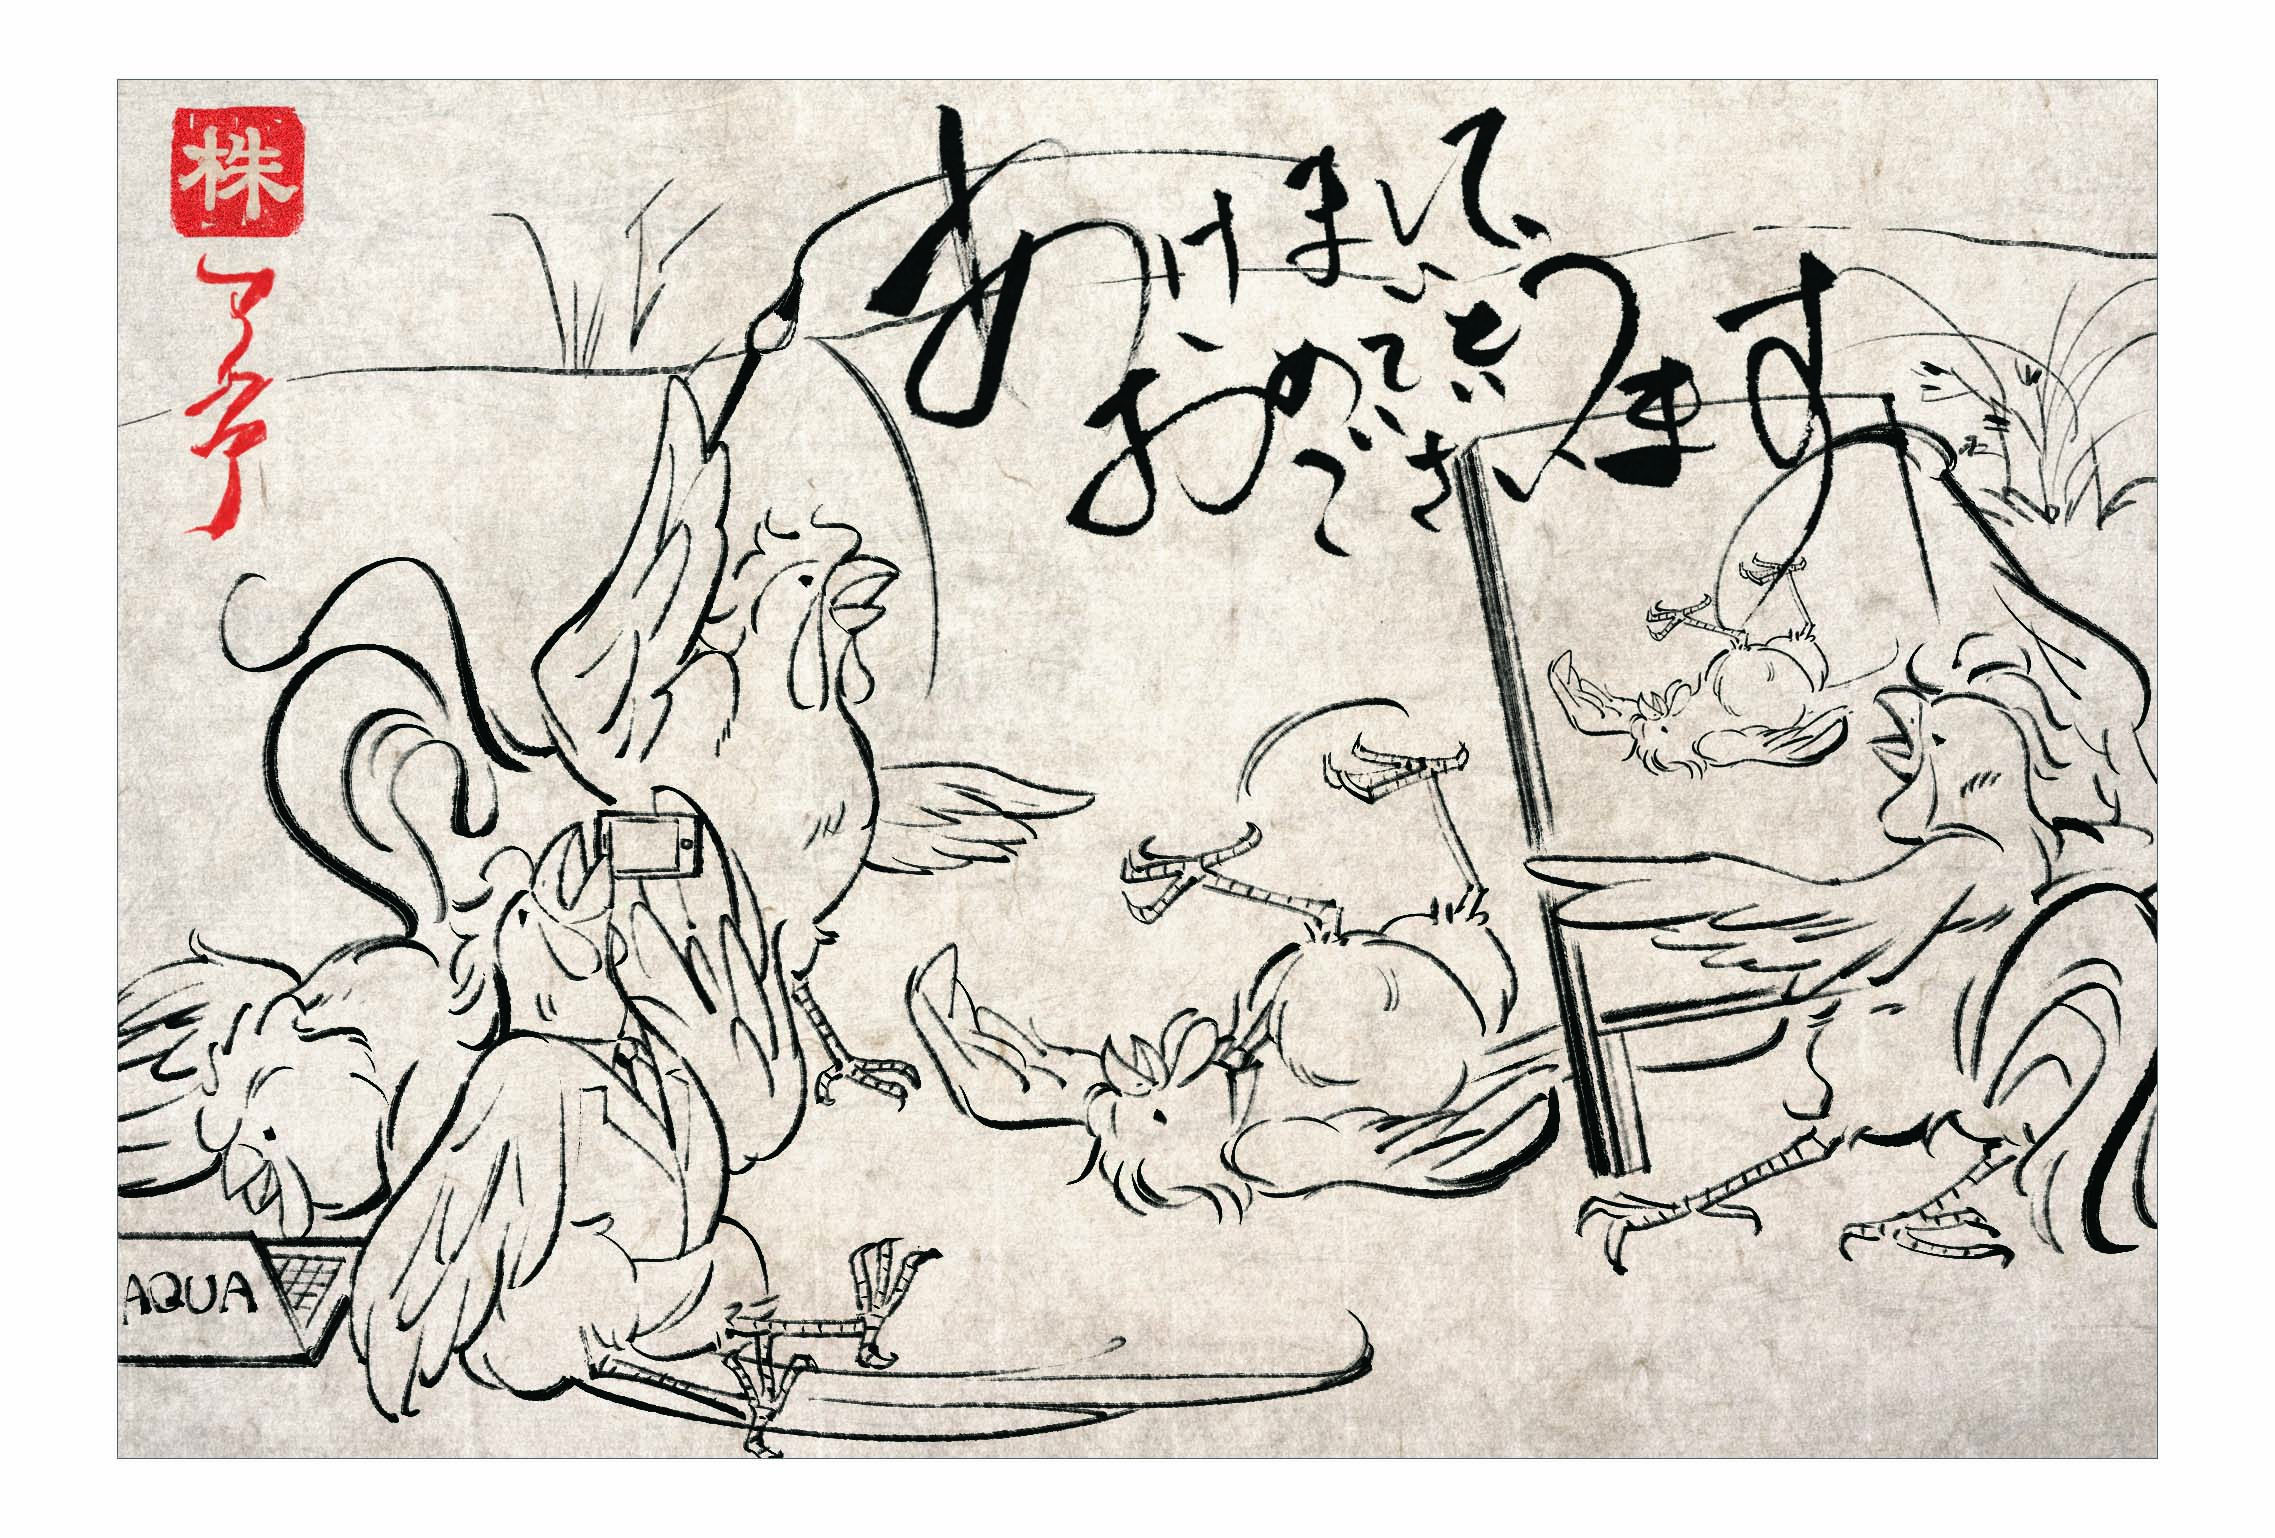 株
あけまして、
おめでとう
ございます
AQUA